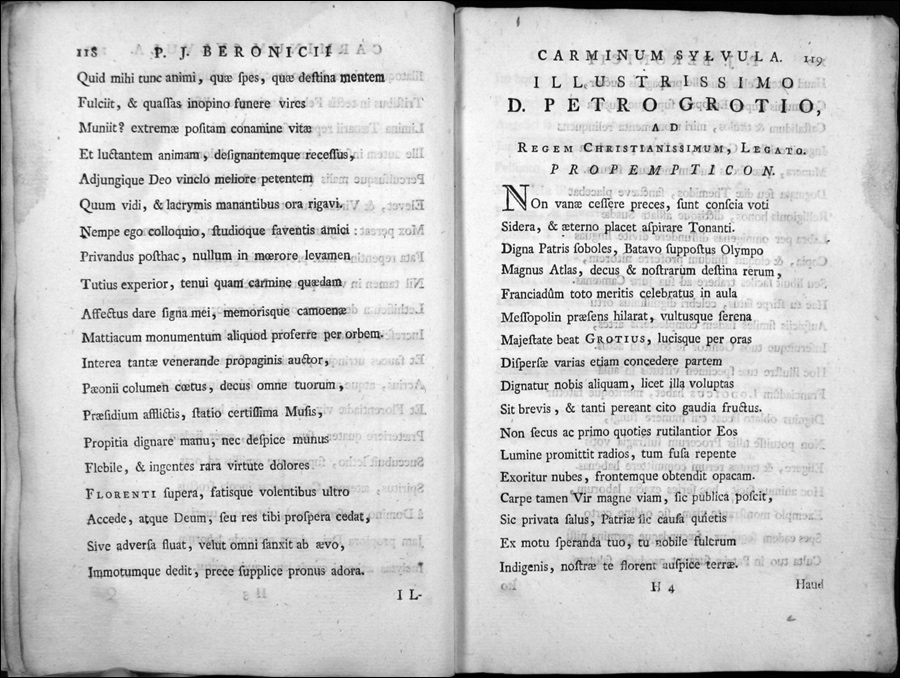 118 P. J. BERONICII
Quid mihi tunc animi, quæ ſpes, quæ deſtina mentem
Fulciit, & quaſſas inopino funere vires
Muniit? extremæ poſitam conamine vitæ
Et luctantem animam, deſignantemque receſſus,
Adjungique Deo vinclo meliore petentem
Quum vidi, & lacrymis manantibus ora rigavi.
Nempe ego colloquio, ſtudioque faventis amici:
Privandus poſthac, nullum in mœrore levamen
Tutius experior, tenui quam carmine quædam
Affectus dare ſigna mei, memorisque camoenæ
Mattiacum monumentum aliquod proferre per orbem.
Interea tantæ venerande propaginis auctor,
Pæonii columen cœtus, decus omne tuorum,
Præſidium afflictis, ſtatio certiſſima Muſis,
Propitia dignare manu, nec deſpice munus
Flebile, & ingentes rara virtute dolores
FLORENTI ſupera, fatisque volentibus ultro
Accede, atque Deum, ſeu res tibi proſpera cedat,
Sive adverſa fluat, velut omni ſanxit ab ævo,
Immotumque dedit, prece ſupplice pronus adora.
IL-
CARMINUM SYLVULA. 119
ILLUSTRISSIMO
D. PETRO GROTIO,
AD
REGEM CHRISTIANISSIMUM, LEGATO.
PROPEMPTICON.
NOn vanæ ceſſere preces, ſunt conſcia voti
Sidera, & æterno placet aſpirare Tonanti.
Digna Patris ſoboles, Batavo ſuppoſtus Olympo
Magnus Atlas, decus & noſtrarum deſtina rerum,
Franciadûm toto meritis celebratus in aula
Meſſopolin præſens hilarat, vultusque ſerena
Majeſtate beat GROTIUS, lucisque per oras
Diſperſæ varias etjam concedere partem
Dignatur nobis aliquam, licet illa voluptas
Sit brevis, & tanti pereant cito gaudia fructus.
Non ſecus ac primo quoties rutilantior Eos
Lumine promittit radios, tum fuſa repente
Exoritur nubes, frontemque obtendit opacam.
Carpe tamen Vir magne viam, ſic publica poſcit,
Sic privata ſalus, Patriæ ſic cauſa quietis
Ex motu ſperanda tuo, tu nobile fulcrum
Indigenis, noſtræ te florent auſpice terræ.
H 4 Haud